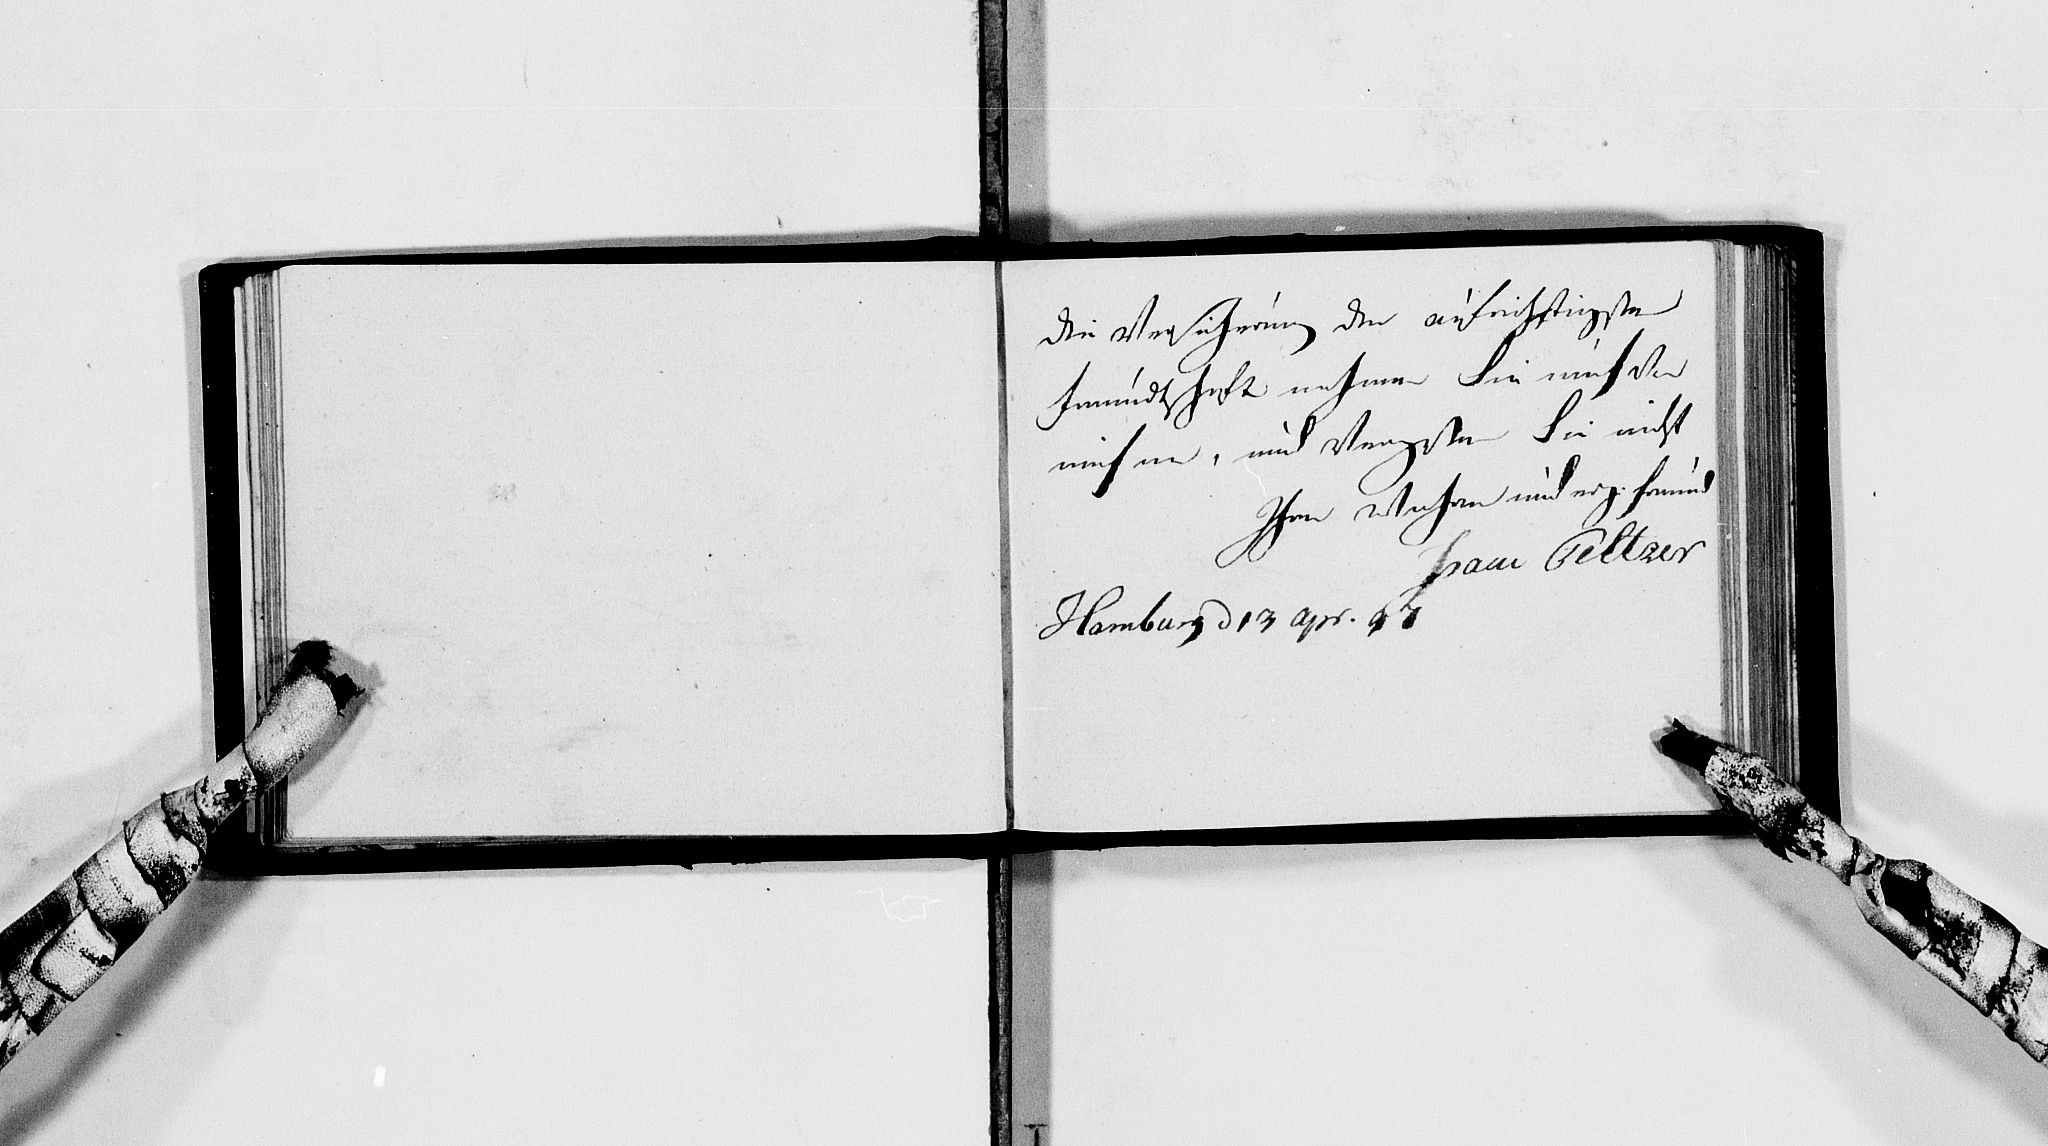 Die Versicherung der aufrichtigsten
Freundtschaft nehmen Sie auch von
mir an, und Vergessen Sie nicht
Ihren Wahren und erg: freund
Isaac Peltzer
Hamburg d 13 Apr. 97